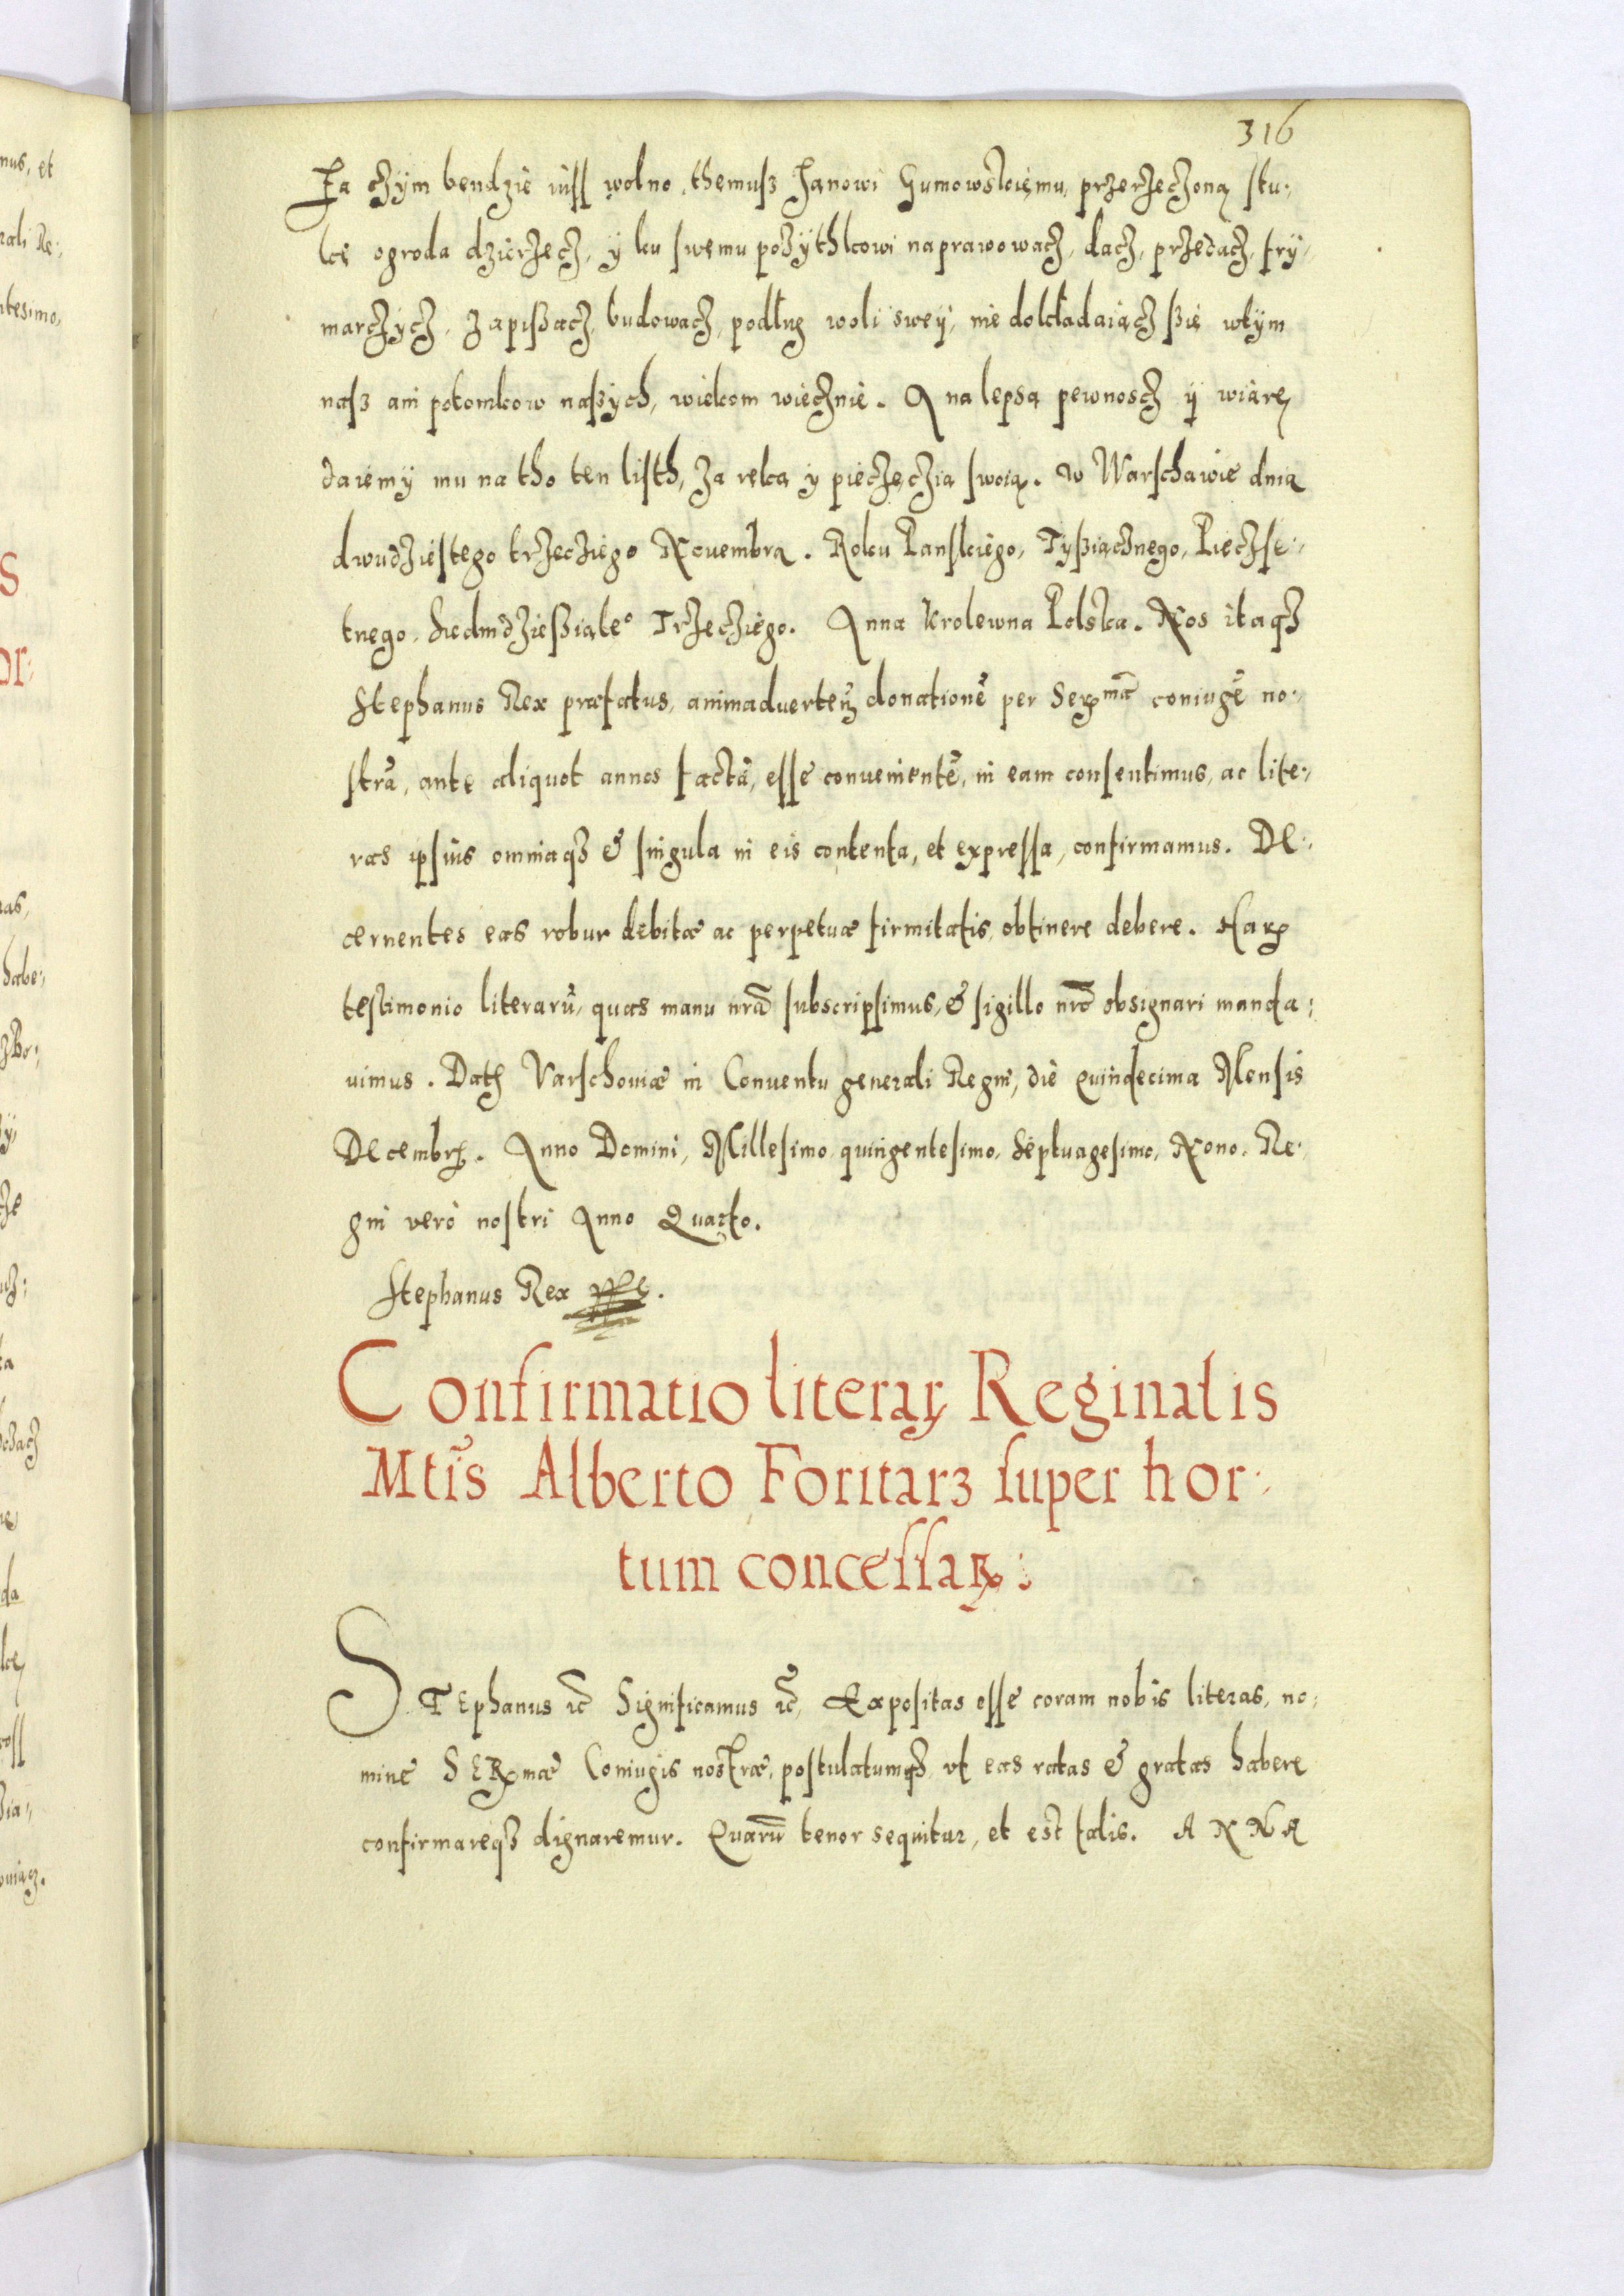 316
Za czÿm bendzie iuss wolno themusz Janowi Gumowskiemu, przerzeczoną stu-
kę ogroda dzierzecz, ÿ ku swemu pozÿthkowi naprawowacz, dacz, przedacz, frÿ-
marczÿcz, zapißacz, budowacz, podług woli sweÿ, nie dokładaiącz ßię wtÿm
nasz ani potomkow naßÿch, wiekom wiecznie. A na lepsą pewnoscz ÿ wiarę
daiemÿ mu na tho ten listh, za reką y pieczęczią swoią. W Warschawie dnia
dwudziestego trzecziego Nouembra. Roku Panskiego, Tyßiącznego, Pieczse-
tnego, Siedmdzießiąte° Trzecziego. Anna Krolewna Polska. Nos itaqȝ
Stephanus Rex præfatus, animaduerten̄ donationē per Serᵐᵃ̄ coniugē no-
strā, ante aliquot annos factā, esse conuenientē, in eam consentimus, ac lite-
ras ipsius omniaqȝ & singula in eis contenta, et expressa, confirmamus. De-
cernentes eas robur debitæ ac perpetuæ firmitatis obtinere debere. Haꝝ
testimonio literarū, quas manu nrā subscripsimus, & sigillo nrō obsignari manda-
uimus. Dat Varschouiæ in Conuentu generali Regni, die Quindecima Mensis
Decembrꝭ. Anno Domini, Millesimo quingentesimo, Septuagesimo, Nono. Re-
gni verò nostri Anno Quarto.
Stephanus Rex
Confirmatio literaꝝ Reginalis
Mtĩs Alberto Foritarz super hor-
tum concessaꝝ:
STEphanus ic̃ Significamus ic̃, Expositas esse coram nobis literas, no-
mine SEꝝmæ Coniugis nostræ, postulatumqȝ vt eas ratas & gratas habere
confirmareqȝ dignaremur. Quarū tenor sequitur, et est talis. ANNA